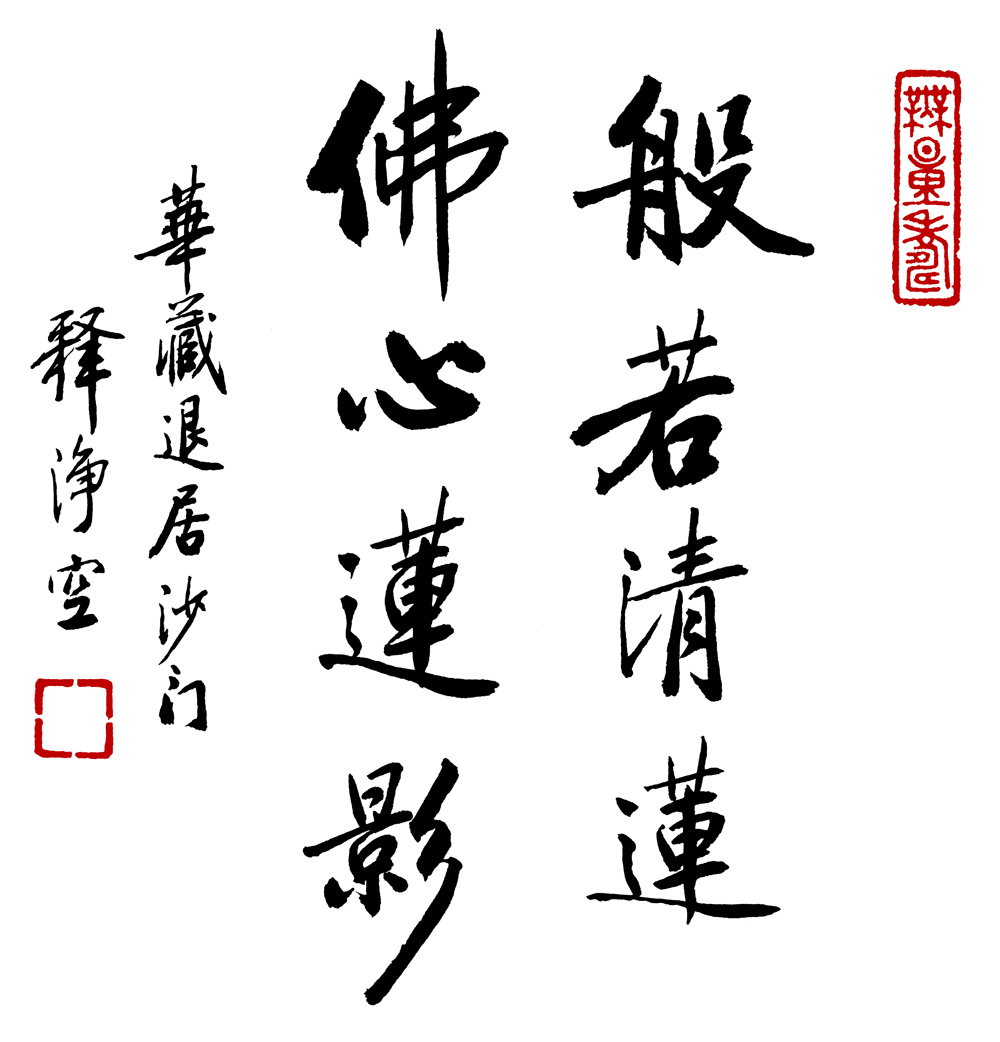 無量壽
般若清蓮
佛心蓮影
華藏退居沙门
释淨空